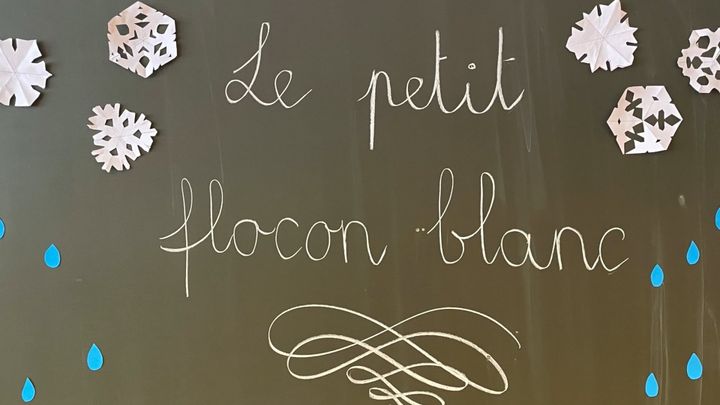 Le petit
flocon blanc